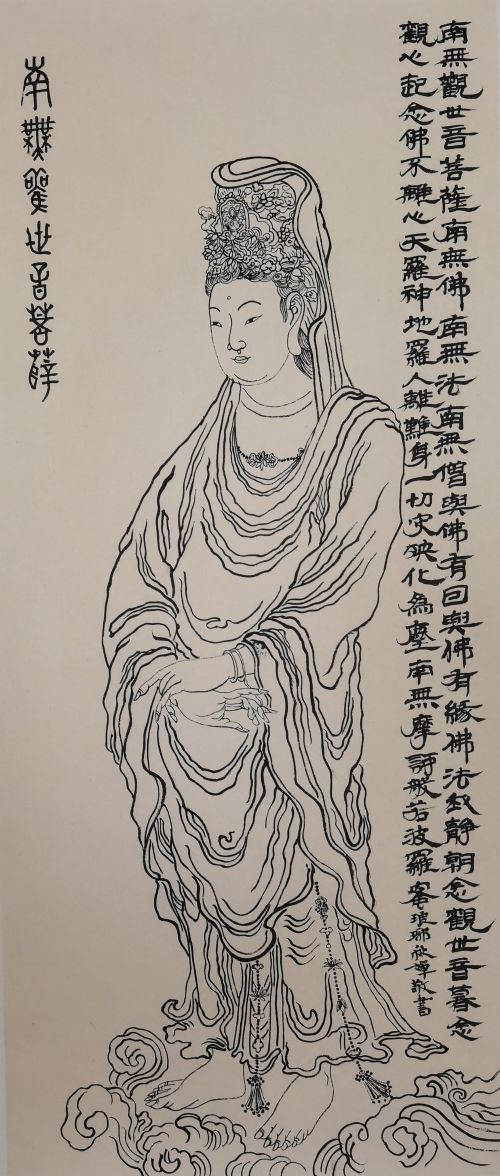 南無觀世音菩薩南無佛南無法南無僧與佛有因與佛有緣佛法靜朝念觀世音暮念
觀心起念佛不離心天羅神地羅人離難身一切灾殃化為塵南無摩訶般若波羅蜜琅琊敬書
南無觀世音菩薩